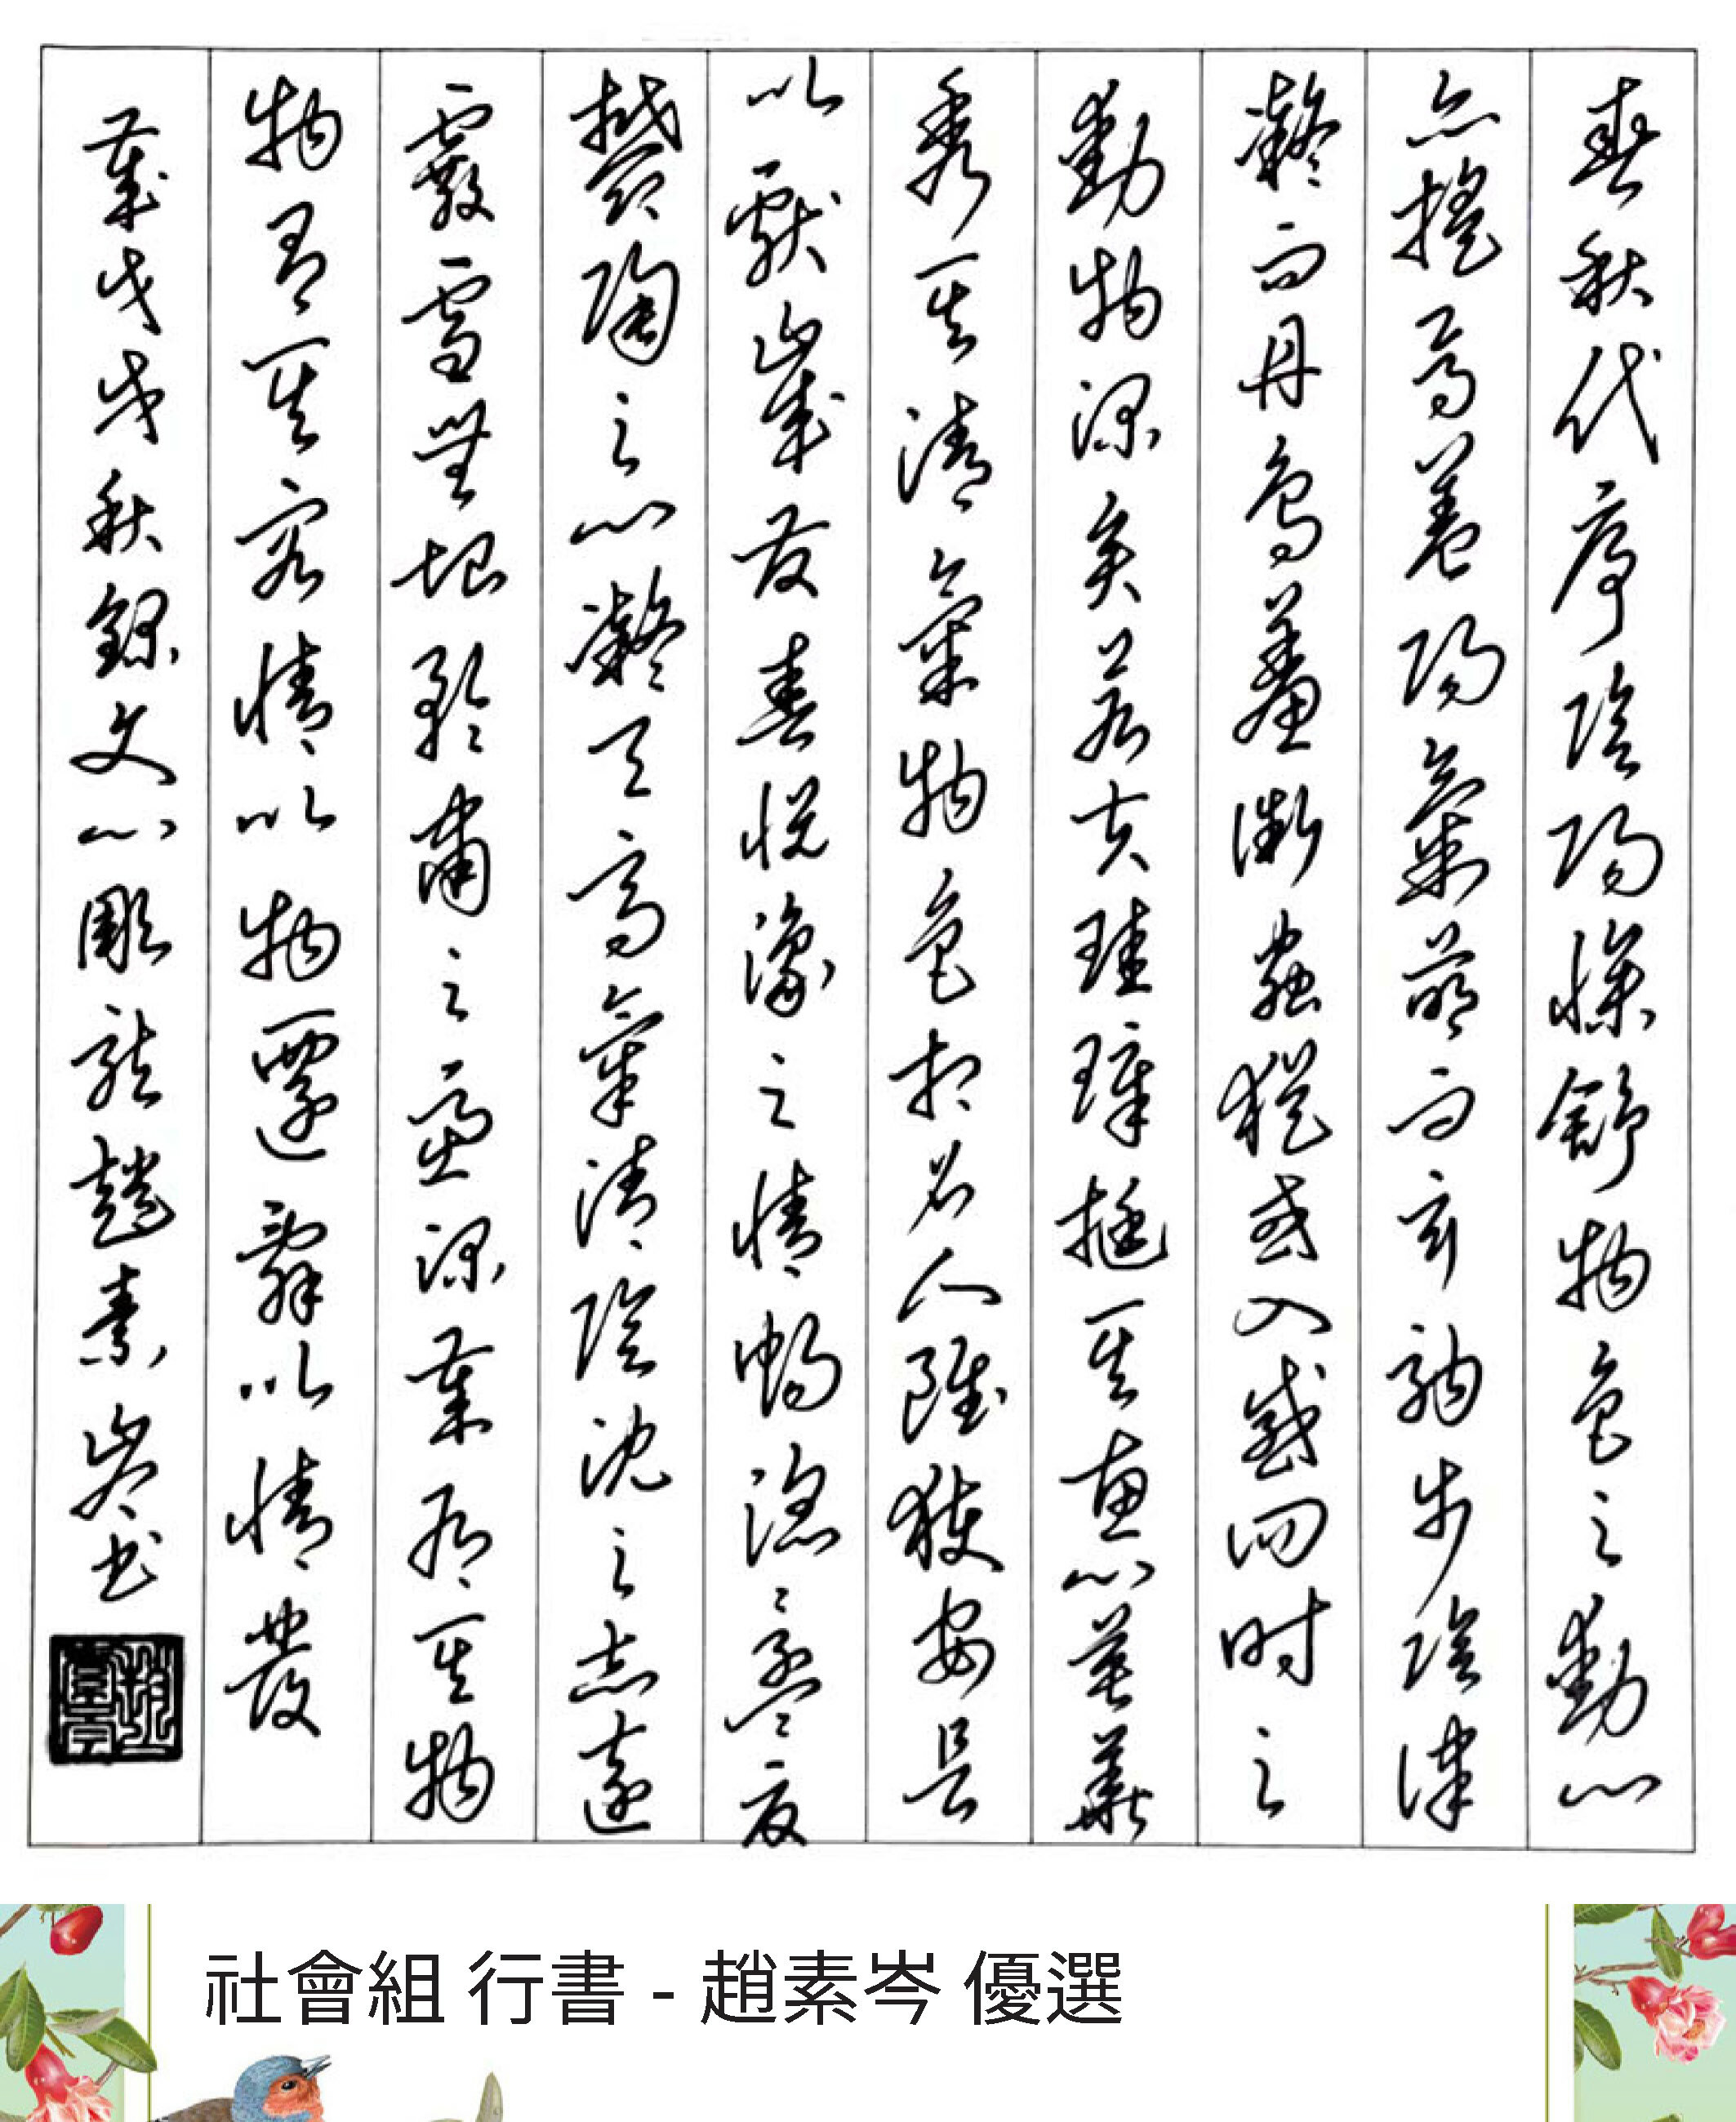 春秋代序陰陽慘舒物色之動心
亦搖焉蓋陽氣萌而玄駒步陰律
凝而丹鳥羞微蟲猶或入感四時之
動物深矣若夫珪璋挺其惠心英華
秀其清氣物色相召人誰獲安是
以獻歲發春悅豫之情暢滔滔孟夏
鬱陶之心凝天高氣清陰沈之志遠
霰雪無垠矜肅之慮深歲有其物
物有其容情以物遷辭以情發
歲戊戌秋錄文心雕龍趙素岑書
社會組 行書 - 趙素岑 優選